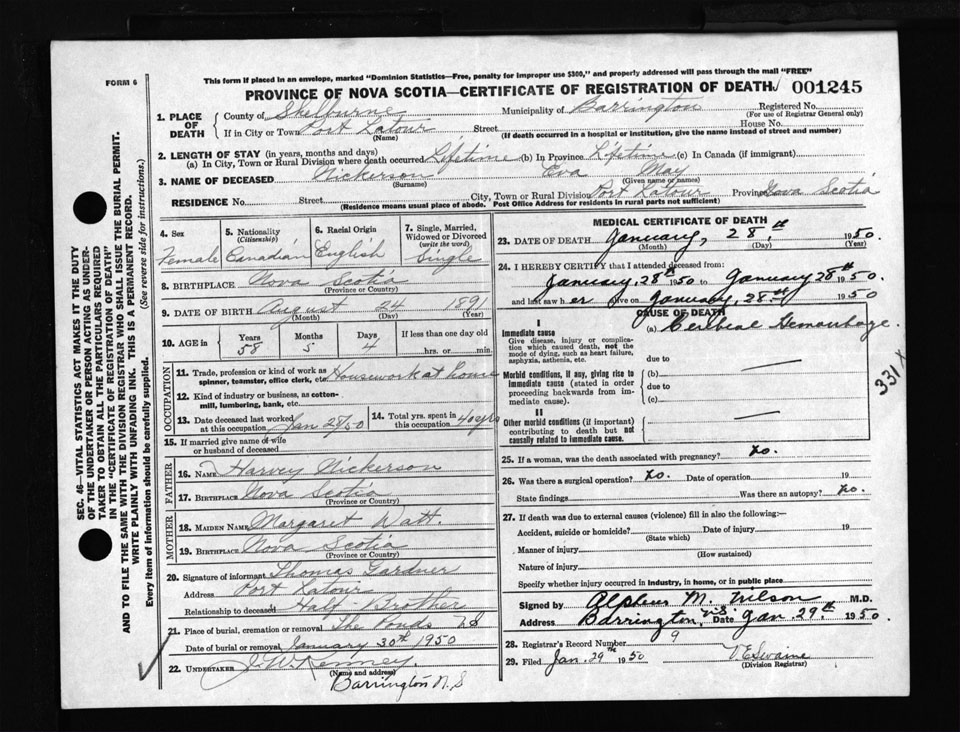 FORM 6
This form if placed in an envelope, marked "Dominion Statistics—Free, penalty for improper use $300," and properly addressed will pass through the mail "FREE"
PROVINCE OF NOVA SCOTIA—CERTIFICATE OF REGISTRATION OF DEATH 001245
1. PLACE OF DEATH
County of Shelburne Municipality of Barrington Registered No.
(For use of Registrar General only)
If in City or Town Port Latour Street House No.
(Name) (If death occurred in a hospital or institution, give the name instead of street and number)
2. LENGTH OF STAY (in years, months and days)
(a) In City, Town or Rural Division where death occurred Lifetime (b) In Province Lifetime (c) In Canada (if immigrant)
3. NAME OF DECEASED Nickerson Eva May
(Surname) (Given name or names)
RESIDENCE No. Street City, Town or Rural Division Port Latour Province Nova Scotia
(Residence means usual place of abode. Post Office Address for residents in rural parts not sufficient)
4. Sex Female
5. Nationality (Citizenship) Canadian
6. Racial Origin English
7. Single, Married, Widowed or Divorced (write the word) Single
8. BIRTHPLACE Nova Scotia
(Province or Country)
9. DATE OF BIRTH August 24 1891
(Month) (Day) (Year)
10. AGE in Years 58 Months 5 Days 4 If less than one day old hrs. or min.
OCCUPATION
11. Trade, profession or kind of work as spinner, teamster, office clerk, etc. Housework at home
12. Kind of industry or business, as cotton-mill, lumbering, bank, etc.
13. Date deceased last worked at this occupation Jan 28/50
14. Total yrs. spent in this occupation 40 yrs
15. If married give name of wife or husband of deceased
FATHER
16. NAME Harvey Nickerson
17. BIRTHPLACE Nova Scotia
(Province or Country)
MOTHER
18. MAIDEN NAME Margaret Watt.
19. BIRTHPLACE Nova Scotia
(Province or Country)
20. Signature of informant Thomas Gardner
Address Port Latour
Relationship to deceased Half-Brother
21. Place of burial, cremation or removal The Ponds NS
Date of burial or removal January 30th 1950
22. UNDERTAKER J. W. Kenney.
(Name and address)
Barrington N.S
MEDICAL CERTIFICATE OF DEATH
23. DATE OF DEATH January, 28,th 1950.
(Month) (Day) (Year)
24. I HEREBY CERTIFY that I attended deceased from:
January, 28th 1950 to January 28th 1950.
and last saw her alive on January, 28th 1950
CAUSE OF DEATH
I
Immediate cause
Give disease, injury or complication which caused death, not the mode of dying, such as heart failure, asphyxia, asthenia, etc.
(a) Cerebeal Hemorrhage.
due to
Morbid conditions, if any, giving rise to immediate cause (stated in order proceeding backwards from immediate cause).
(b)
due to
(c)
331 X
II
Other morbid conditions (if important) contributing to death but not causally related to immediate cause.
25. If a woman, was the death associated with pregnancy? No.
26. Was there a surgical operation? No. Date of operation 19
State findings Was there an autopsy? No.
27. If death was due to external causes (violence) fill in also the following:—
Accident, suicide or homicide? Date of injury 19
(State which)
Manner of injury
(How sustained)
Nature of injury
Specify whether injury occurred in industry, in home, or in public place
Signed by Alpheus M. Wilson M.D.
Address Barrington, N.S. Date Jan. 29th 1950
28. Registrar's Record Number 9
29. Filed Jan. 29th 1950 V. E. Swaine
(Division Registrar)
SEC. 46—VITAL STATISTICS ACT MAKES IT THE DUTY
OF THE UNDERTAKER OR PERSON ACTING AS UNDER-
TAKER TO OBTAIN ALL THE PARTICULARS REQUIRED
IN THE "CERTIFICATE OF REGISTRATION OF DEATH"
AND TO FILE THE SAME WITH THE DIVISION REGISTRAR WHO SHALL ISSUE THE BURIAL PERMIT.
WRITE PLAINLY WITH UNFADING INK. THIS IS A PERMANENT RECORD.
Every item of information should be carefully supplied. (See reverse side for instructions.)